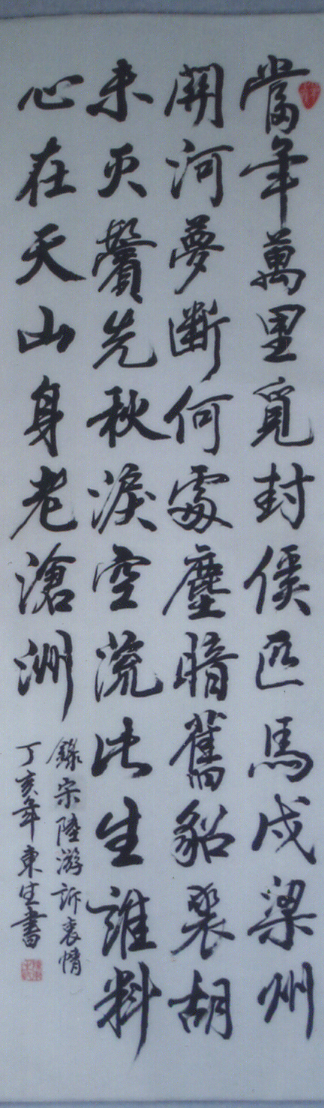 當年萬里覓封侯匹馬戍梁州
關河夢斷何處塵暗舊貂裘胡
未灭鬢先秋淚空流此生誰料
心在天山身老滄洲
錄宋陸游訴衷情
丁亥年東生書